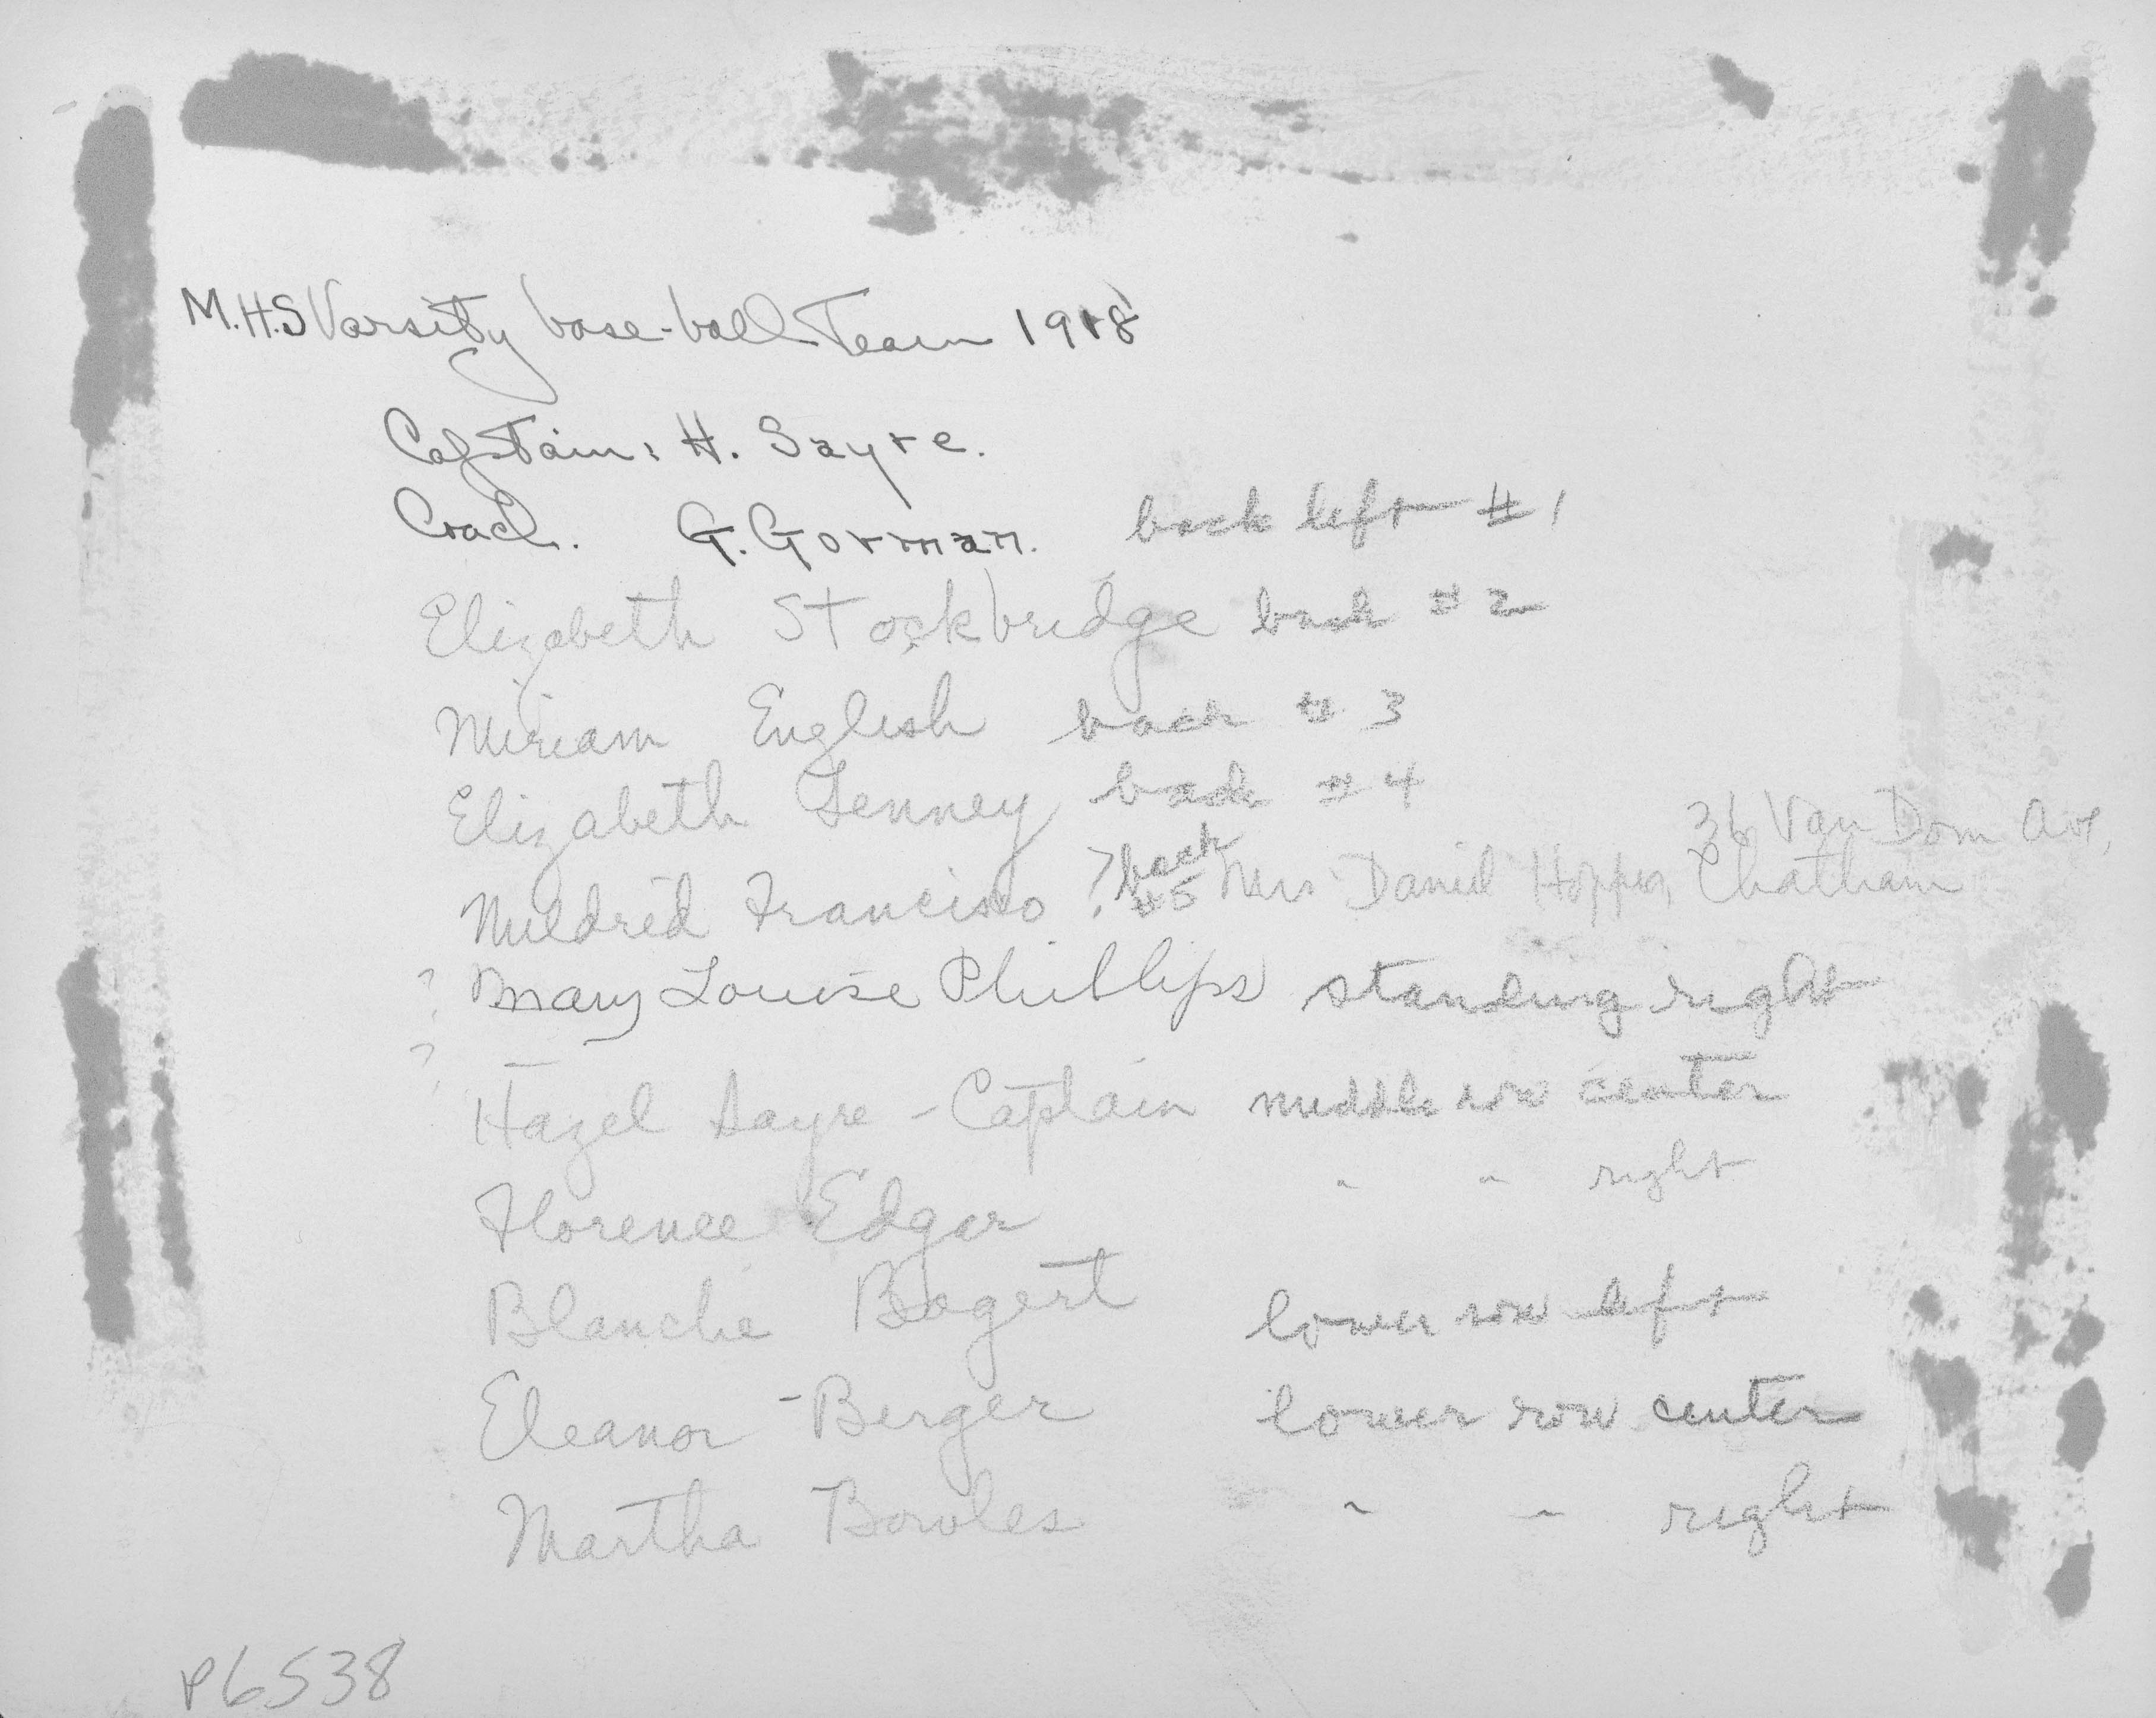 M.H.S Varsity base-ball Team 1918
Captain: H. Sayre.
Coach. G. Gorman. back left #1
Elizabeth Stockbridge back #2
Miriam English back #3
Elizabeth Tenney back #4
36 Van Dorn Ave,
Mildred Francisco ? back #5 Mrs Daniel Hopper, Chatham
? Mary Louise Phillips standing right
? Hazel Sayre - Captain middle row center
" " right
Florence Edgar
Blanche Bogert lower row left
Eleanor Berger lower row center
Martha Bowles " " right
P6538